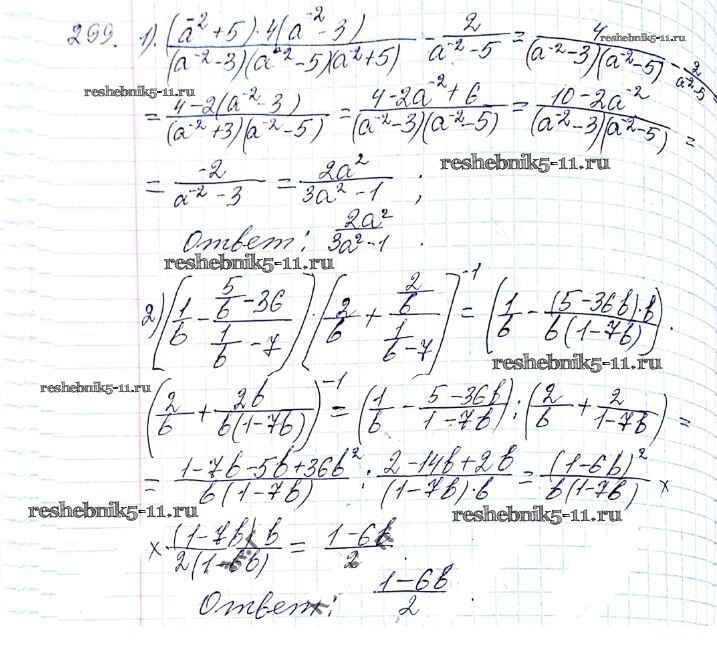 299. 1). ((a⁻² + 5)·4(a⁻² - 3))/((a⁻² - 3)(a⁻² - 5)(a⁻² + 5)) - 2/(a⁻² - 5) = 4/((a⁻² - 3)(a⁻² - 5)) - 2/(a⁻² - 5) =
reshebnik5-11.ru
= (4 - 2(a⁻² - 3))/((a⁻² + 3)(a⁻² - 5)) = (4 - 2a⁻² + 6)/((a⁻² - 3)(a⁻² - 5)) = (10 - 2a⁻²)/((a⁻² - 3)(a⁻² - 5)) =
reshebnik5-11.ru
= -2/(a⁻² - 3) = 2a²/(3a² - 1) ;
Ответ: 2a²/(3a² - 1) .
reshebnik5-11.ru
2) (1/b - (5/b - 36)/(1/b - 7)) · (2/b + (2/b)/(1/b - 7))⁻¹ = (1/b - ((5 - 36b)·b)/(b(1 - 7b))) ·
reshebnik5-11.ru
reshebnik5-11.ru
(2/b + 2b/(b(1 - 7b)))⁻¹ = (1/b - (5 - 36b)/(1 - 7b)) : (2/b + 2/(1 - 7b)) =
= (1 - 7b - 5b + 36b²)/(b(1 - 7b)) : (2 - 14b + 2b)/((1 - 7b)·b) = (1 - 6b)²/(b(1 - 7b)) ×
reshebnik5-11.ru reshebnik5-11.ru
× ((1 - 7b) b)/(2(1 - 6b)) = (1 - 6b)/2 .
Ответ: (1 - 6b)/2 .